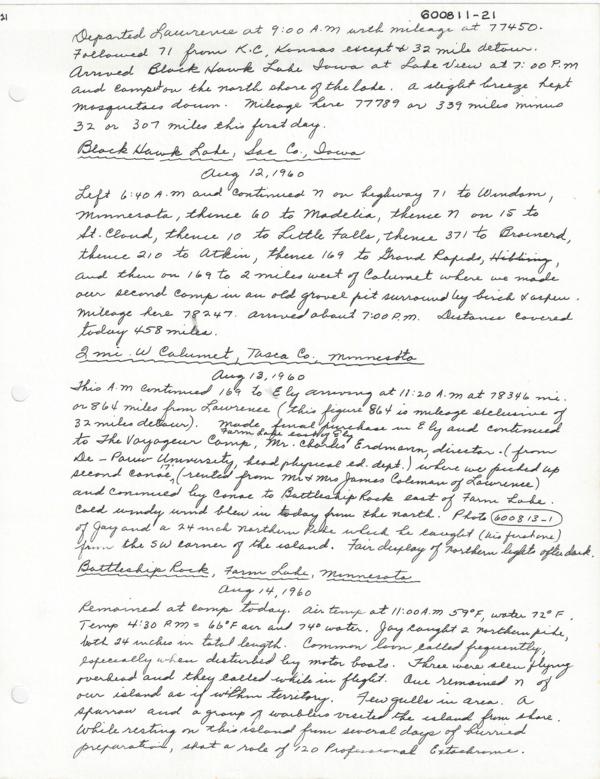 21
600811-21
Departed Lawrence at 9:00 A.M with mileage at 77450.
Followed 71 from K.C. Kansas except 4 32 mile detour.
Arrived Black Hawk Lake Iowa at Lake View at 7:00 P.M
and camped on the north shore of the lake. A slight breeze kept
mosquetoes down. Mileage here 77789 or 339 miles minus
32 or 307 miles this first day.
Black Hawk Lake, Sac Co., Iowa
Aug 12, 1960
Left 6:40 A.M and continued N on highway 71 to Windom,
Minnesota, thence 60 to Madelia, thence N on 15 to
St. Cloud, thence 10 to Little Falls, thence 371 to Brainerd,
thence 210 to Atkin, thence 169 to Grand Rapids, Hibbing,
and then on 169 to 2 miles west of Calumet where we made
our second camp in an old gravel pit surround by birch & aspen.
Mileage here 78247. arrived about 7:00 P.M. Distance covered
today 458 miles.
2 mi. W Calumet, Tasca Co., Minnesota
Aug 13, 1960
This A.M continued 169 to Ely arriving at 11:20 A.M at 78346 mi.
or 864 miles from Lawrence (this figure 864 is mileage exclusive of
32 miles detour). Made final purchase in Ely and continued
Farm Lake east of Ely
to The Voyageur Camp, Mr. Charles Erdmann, director. (from
De-Pauw University, head physical ed. dept.) where we picked up
second canoe, 17' (rented from Mr & Mrs James Coleman of Lawrence)
and continued by canoe to Battleship Rock east of Farm Lake.
Cold windy wind blew in today from the north. Photo 600813-1
of Jay and a 24 inch northern Pike which he caught (his first one)
from the SW corner of the island. Fair display of northern lights after dark.
Battleship Rock, Farm Lake, Minnesota
Aug 14, 1960
Remained at camp today. Air temp at 11:00 A.M 59°F, water 72°F.
Temp 4:30 P.M = 66°F air and 74° water. Jay caught 2 northern pike,
both 24 inches in total length. Common loon called frequently,
especially when disturbed by motor boats. Three were seen flying
overhead and they called while in flight. One remained N of
our island as if within territory. Few gulls in area. A
sparrow and a group of warblers visited the island from shore.
While resting on this island from several days of hurried
preparation, shot a role of 120 Professional Extachrome.